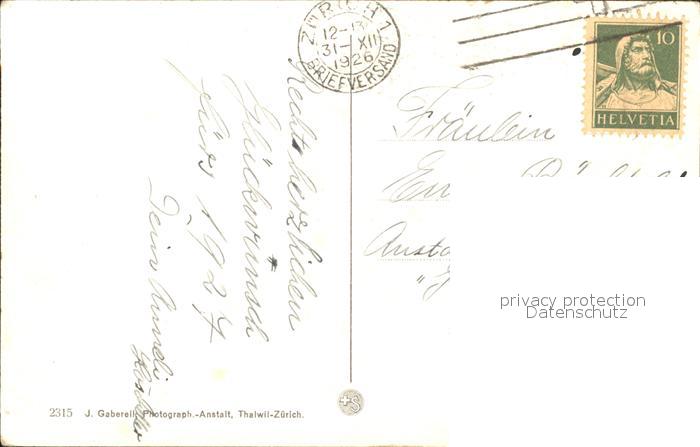 ZÜRICH 1
12-13
31 XII
1926
BRIEFVERSAND
10
HELVETIA
Recht herzlichen
Glückwunsch
fürs 1927
Dein Ruedi
Fräulein
privacy protection
Datenschutz
2315 J. Gaberell, Photograph.-Anstalt, Thalwil-Zürich.